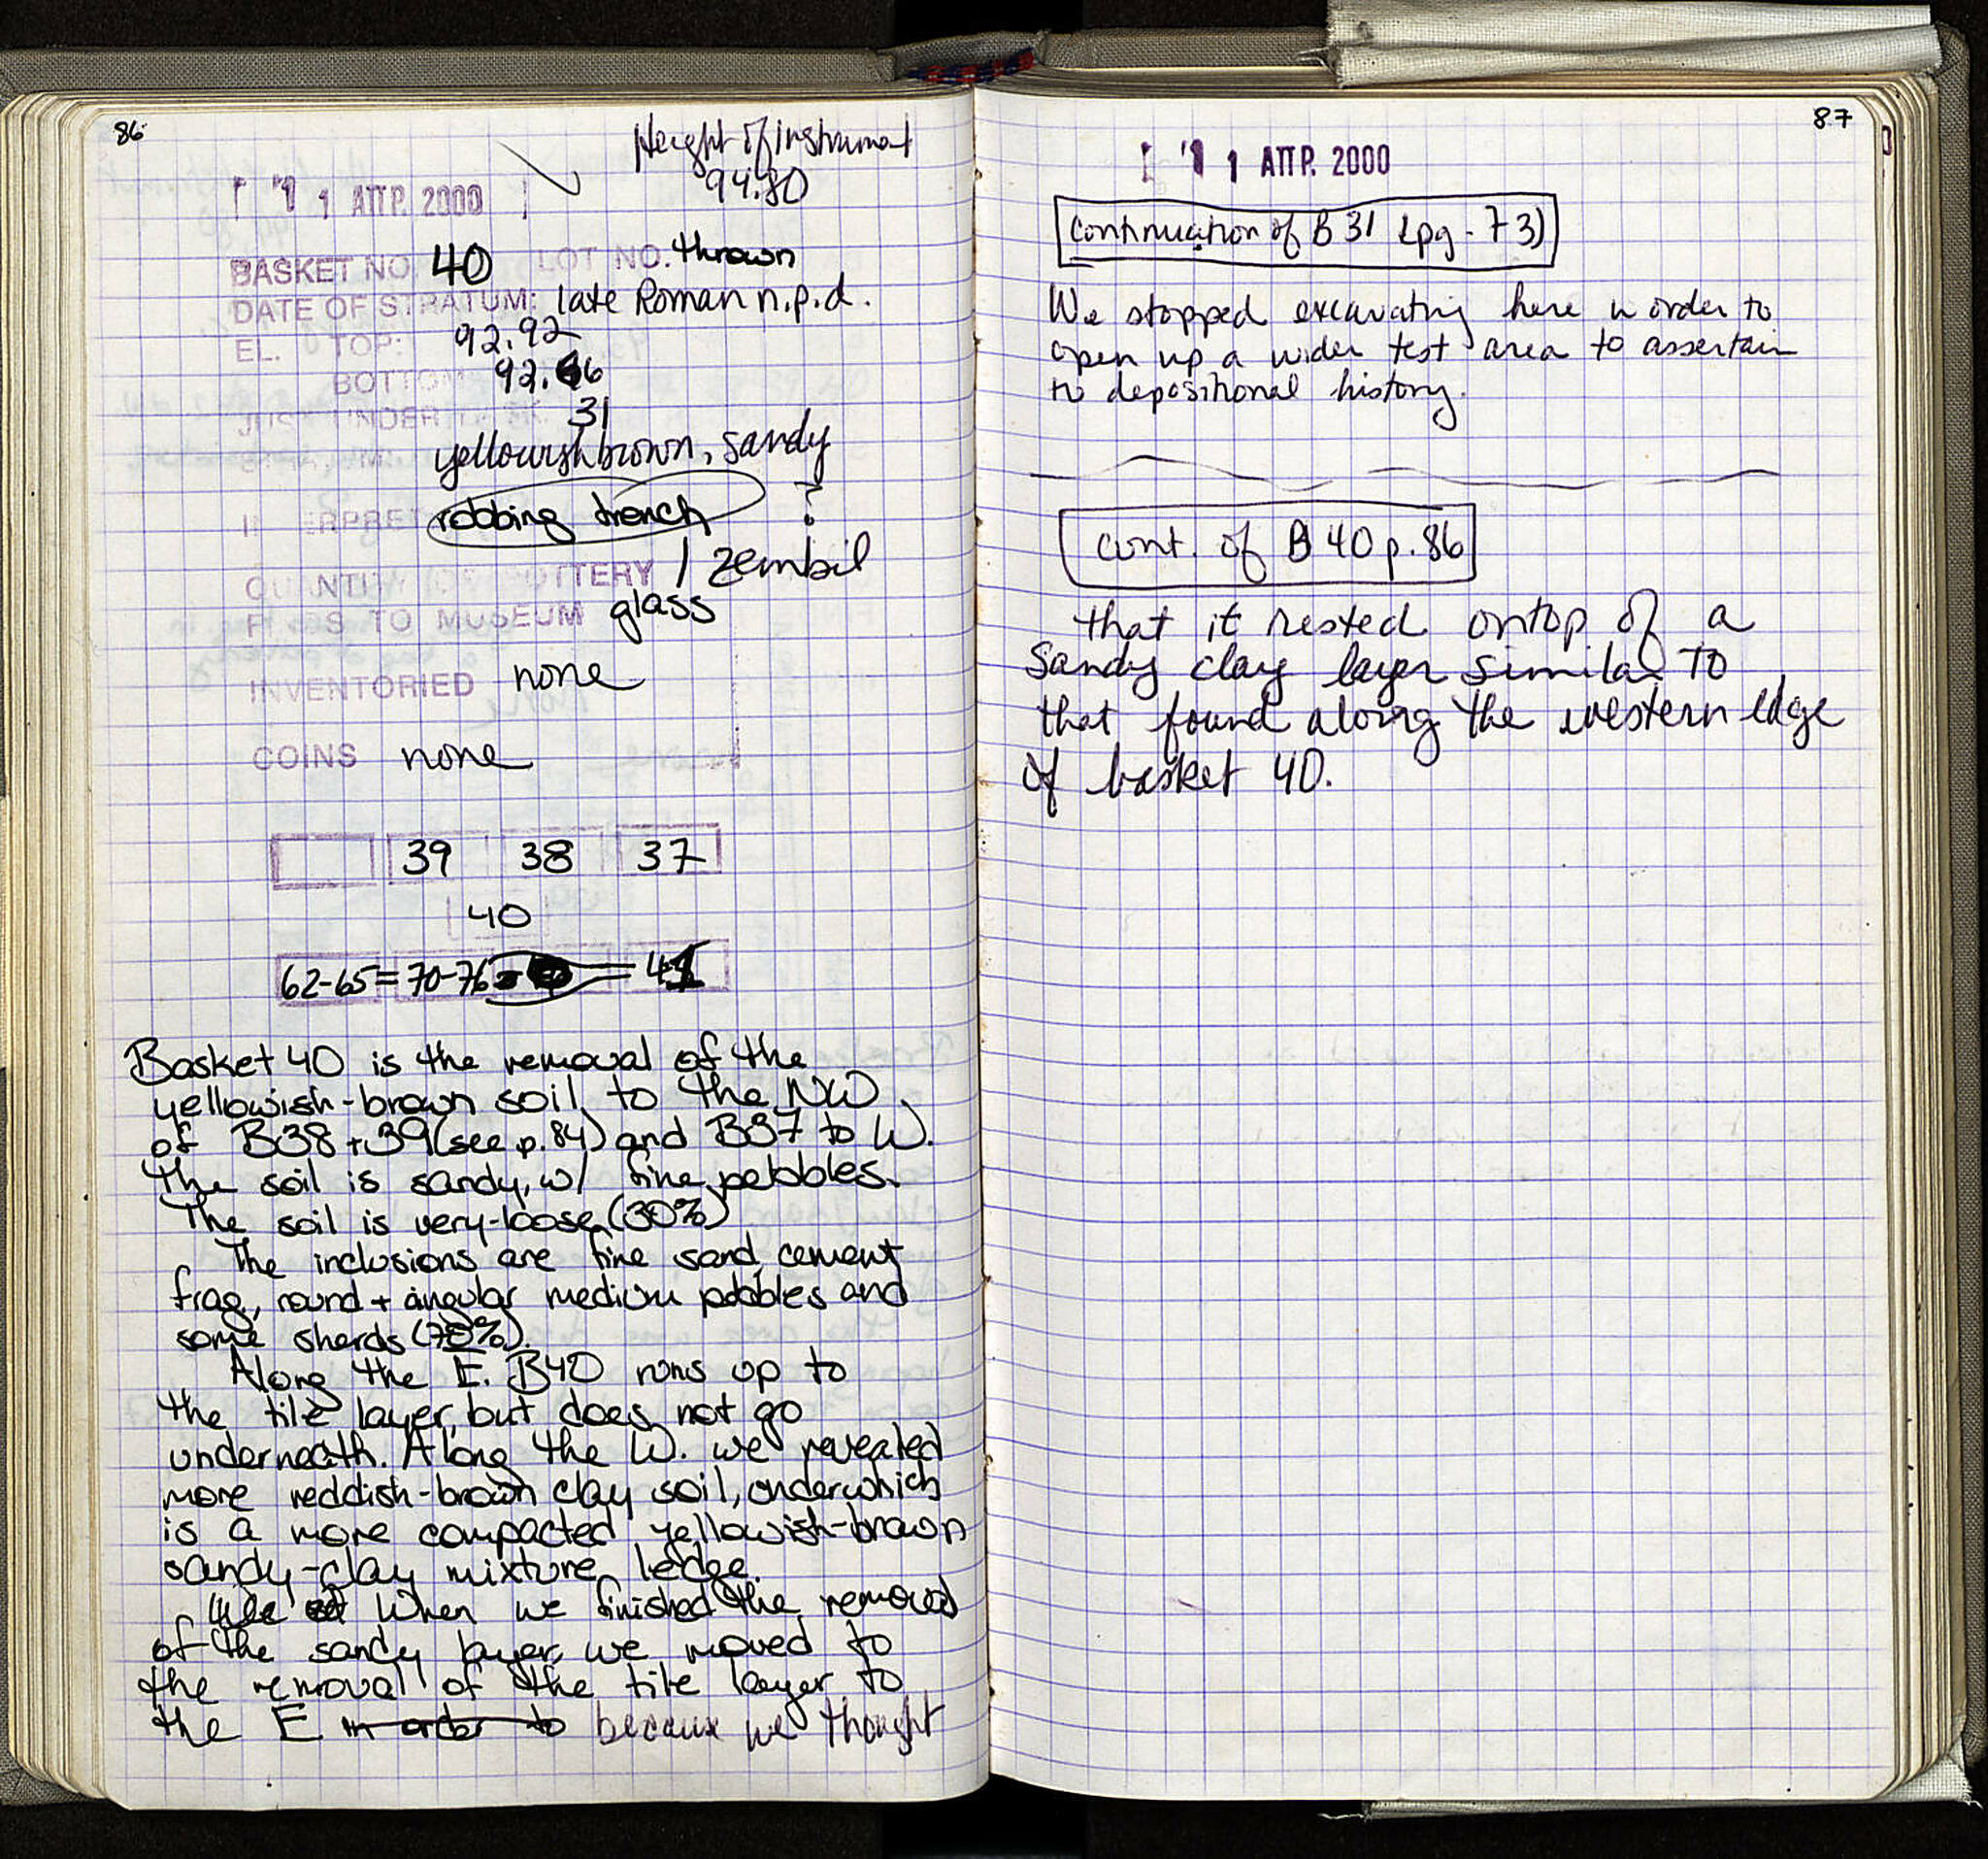 86
Height of instrument
94.80
1 ΑΠΡ. 2000
BASKET NO. 40 LOT NO. thrown
DATE OF STRATUM: late Roman n.p.d.
EL. TOP: 92.92
BOTTOM 92.66
JUST UNDER 31
yellowish brown, sandy
robbing trench ?
QUANTITY OF POTTERY 1 zembil
FINDS TO MUSEUM glass
INVENTORIED none
COINS none
39 38 37
40
62-65 = 70-76 = 41
Basket 40 is the removal of the
yellowish-brown soil to the NW
of B38 + 39 (see p. 84) and B37 to W.
The soil is sandy, w/ fine pebbles.
The soil is very-loose (30%)
The inclusions are fine sand, cement
frag, round + angular medium pebbles and
some sherds (70%).
Along the E. B40 runs up to
the tile layer but does not go
underneath. Along the W. we revealed
more reddish-brown clay soil, underwhich
is a more compacted yellowish-brown
sandy-clay mixture ledge.
We When we finished the removal
of the sandy layer, we moved to
the removal of the tile layer to
the E in order to because we thought
87
1 ΑΠΡ. 2000
Continuation of B 31 (pg. 73)
We stopped excavating here in order to
open up a wider test area to assertain
the depositional history.
cont. of B 40 p. 86
that it rested ontop of a
sandy clay layer similar to
that found along the western edge
of basket 40.